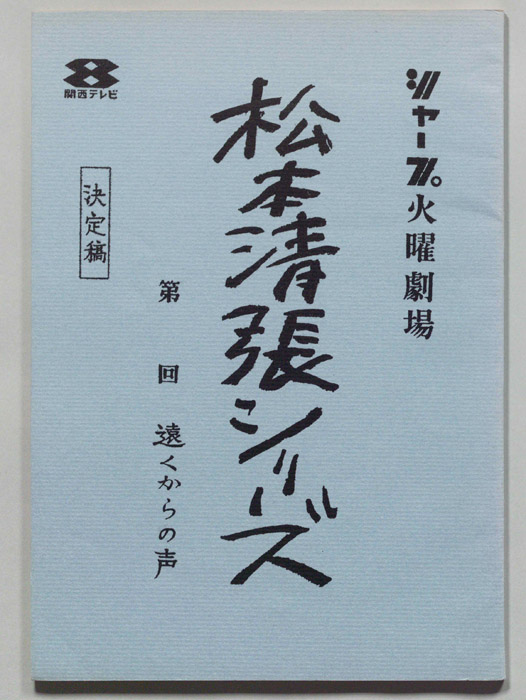 シャープ火曜劇場
松本清張シリーズ
第　回　遠くからの声
決定稿
関西テレビ